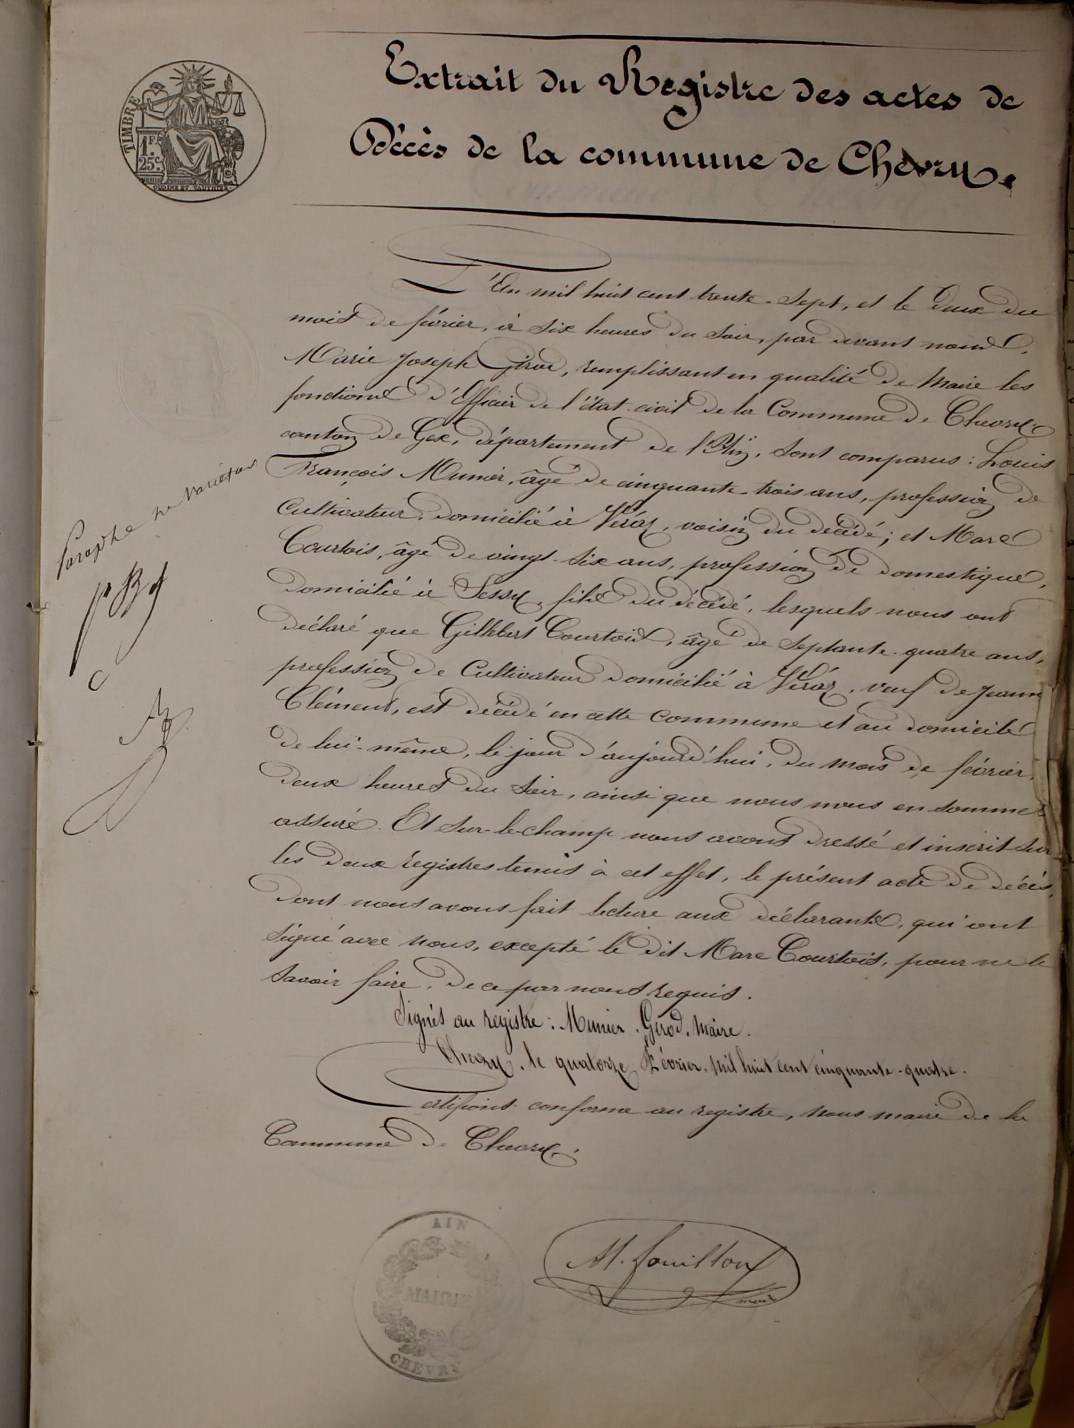 Extrait du Registre des actes de
Décès de la commune de Chevry.
TIMBRE
1F.
25c.
L'An mil huit cent trente-sept, et le Deux du
mois de février, à six heures du soir, par devant nous,
Marie Joseph Girod, remplissant en qualité de Maire les
fonctions d'Officier de l'état civil de la Commune de Chevry
canton de Gex, département de l'Ain, sont comparus : Louis
François Munier, âgé de cinquante-trois ans, profession de
Cultivateur, domicilié à Véraz, voisin du décédé ; et Marc
Courtois, âgé de vingt-six ans, profession de domestique,
domicilié à Sessy, fils du décédé, lesquels nous ont
déclaré que Gilbert Courtois, âgé de septante-quatre ans,
profession de Cultivateur domicilié à Véraz, veuf de Jeanne
Clément, est décédé en cette commune et au domicile
de lui-même, le jour d'aujourd'hui, du mois de février,
deux heures du soir, ainsi que nous nous en sommes
assuré. Et sur-le-champ nous avons dressé et inscrit sur
les deux régistres tenus à cet effet, le présent acte de décès,
dont nous avons fait lecture aux déclarants, qui ont
signé avec nous, excepté le dit Marc Courtois, pour ne le
savoir faire, de ce par nous requis.
Signés au registre : Munier. Girod, Maire.
Chevry, le quatorze Février, mil huit cent cinquante-quatre.
Certifions conforme au registre, nous maire de la
Commune de Chevry.
Paraphé ne varietur
AIN
MAIRIE
CHEVRY
M. fouilloux